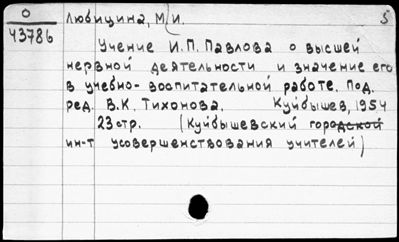 О
43786
Любицина, М. И.
5
Учение И.П. Павлова о высшей
нервной деятельности и значение его
в учебно-воспитательной работе. Под.
ред. В.К. Тихонова. Куйбышев, 1954
23 стр. (Куйбышевский городской
ин-т усовершенствования учителей)